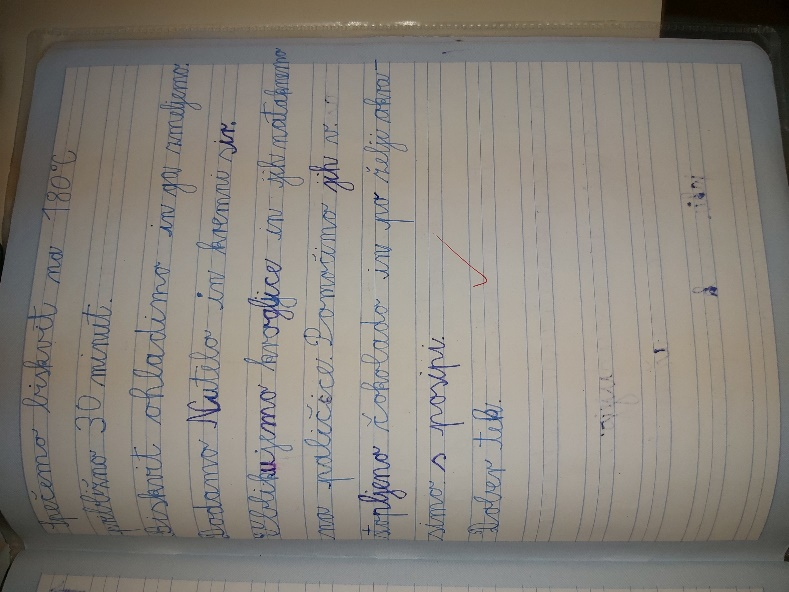 Spečemo biskvit na 180°C
približno 30 minut.
Biskvit ohladimo in ga zmeljemo.
Dodamo Nutelo in kremni sir.
Izoblikujemo kroglice in jih nataknemo
na paličice. Pomočimo jih v
stopljeno čokolado in po želji okra-
simo s posipi.
Dober tek.